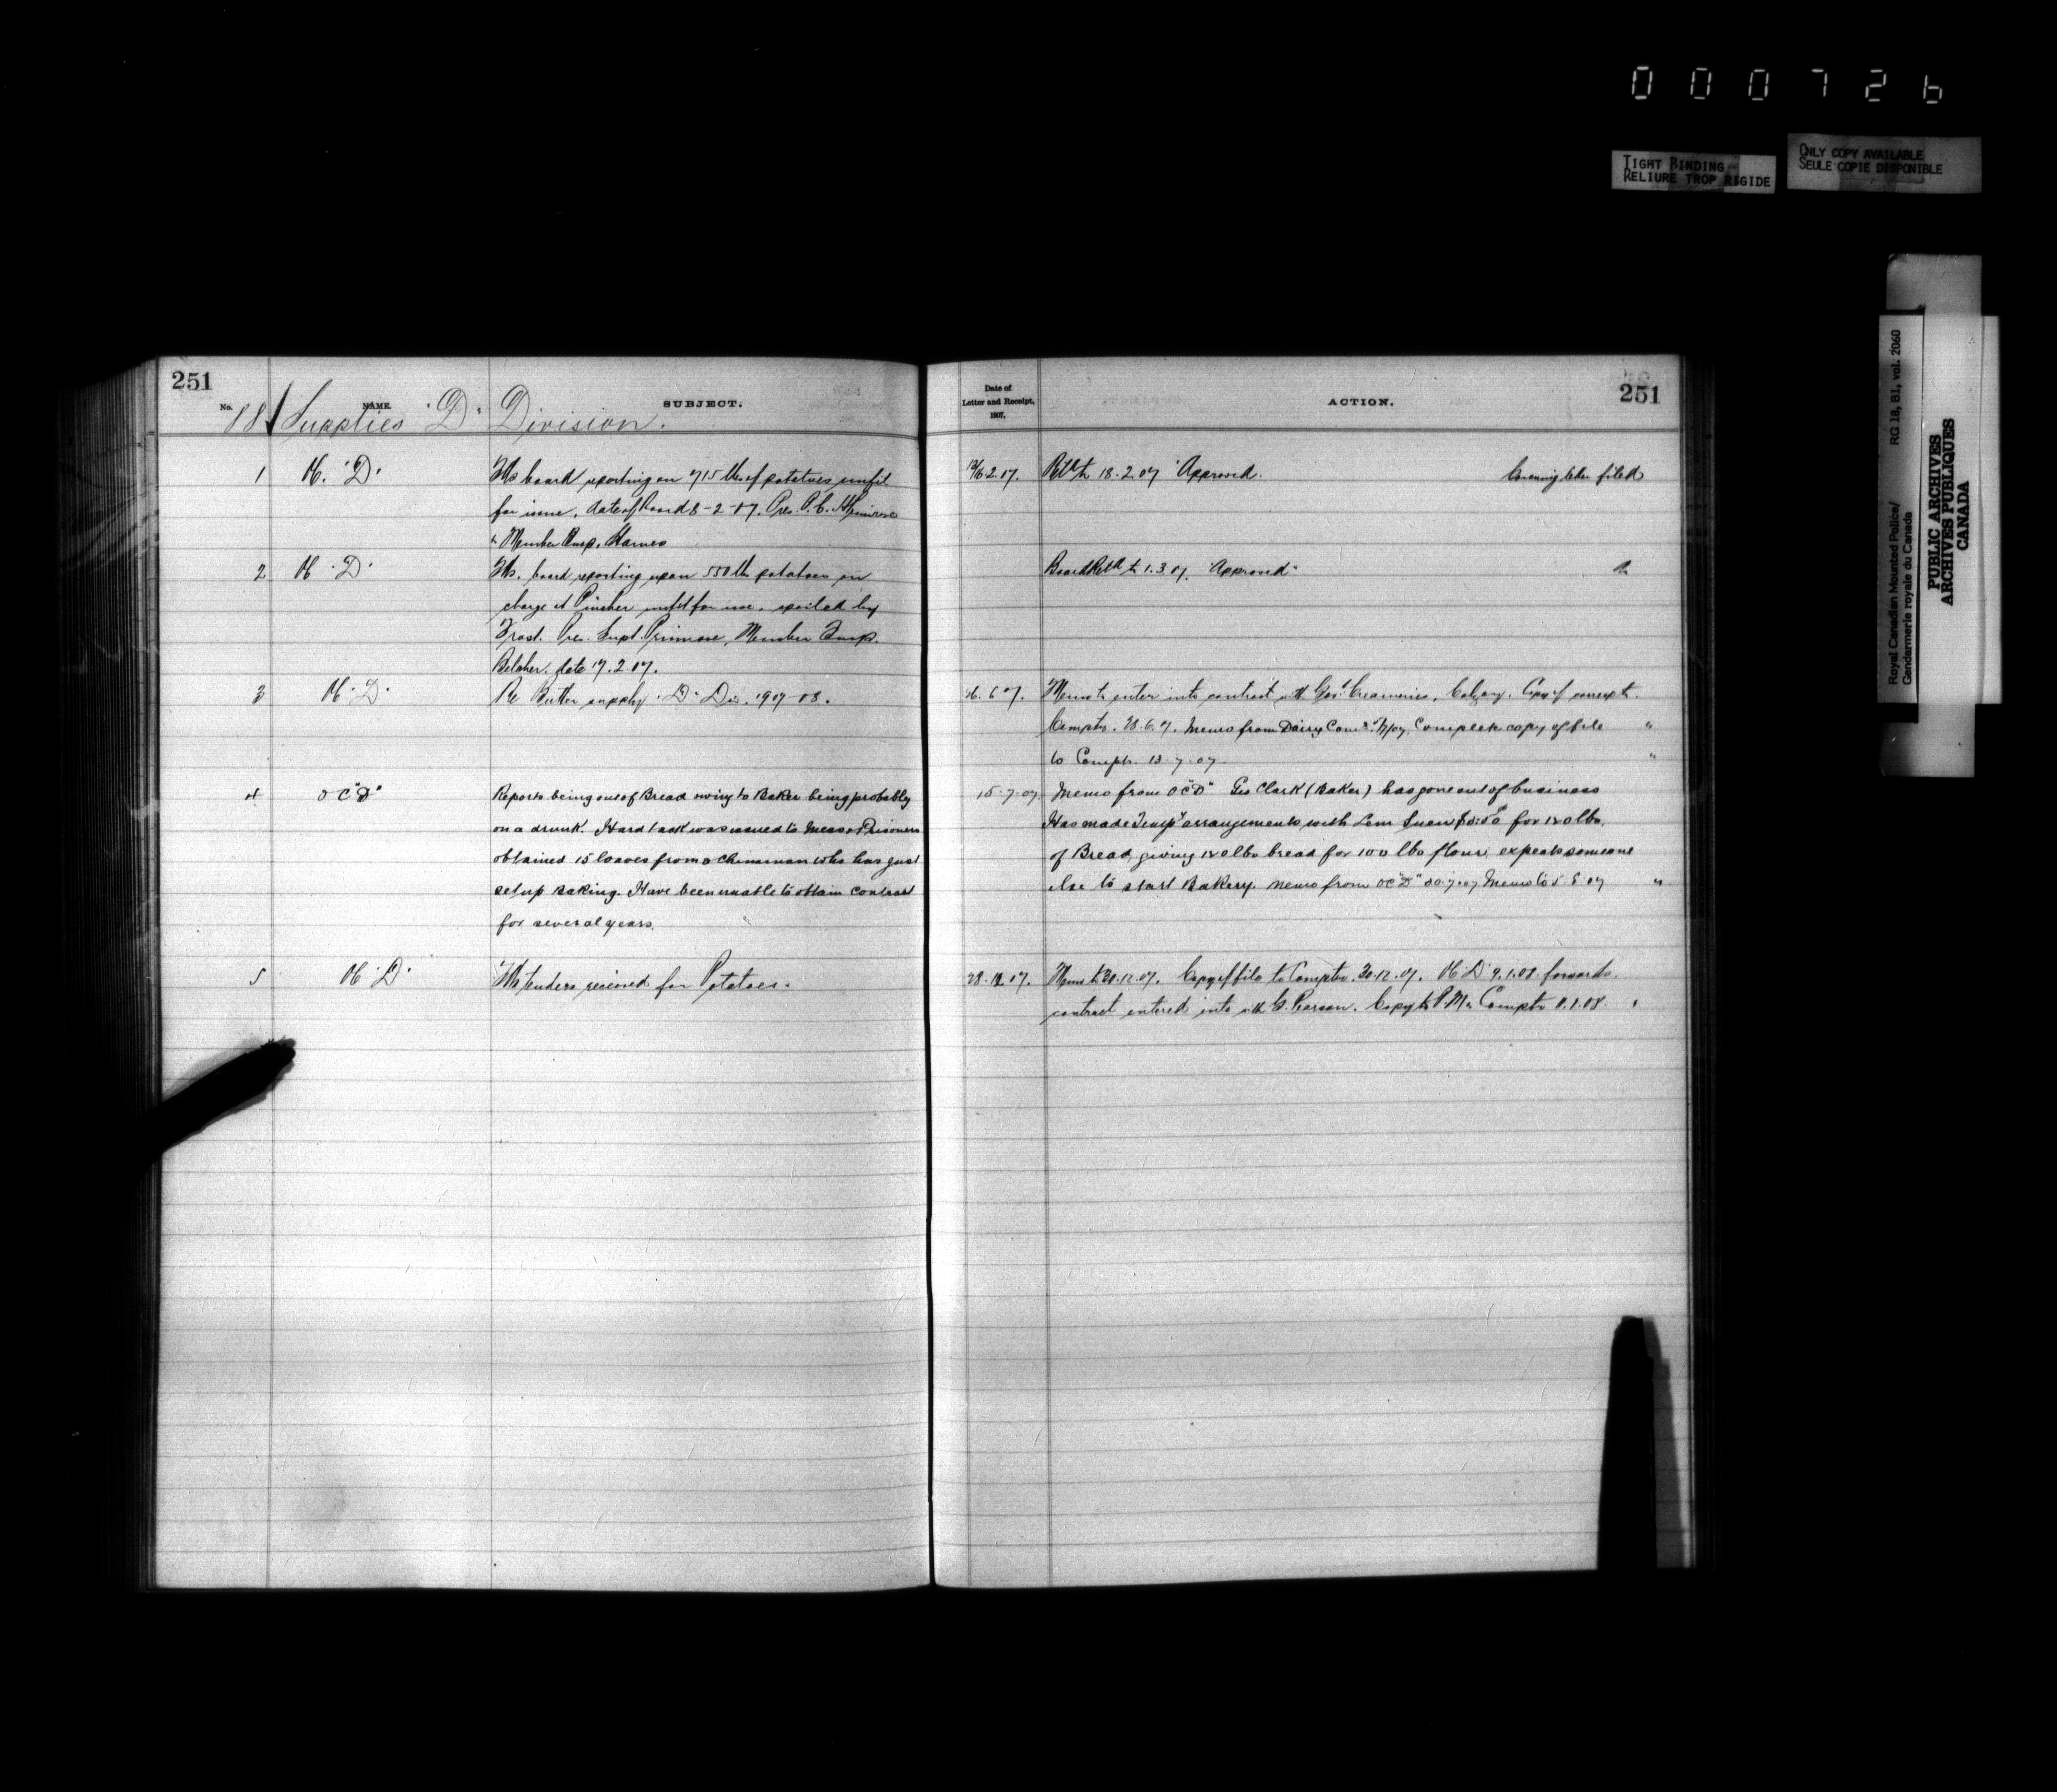 000726
TIGHT BINDING
RELIURE TROP RIGIDE
ONLY COPY AVAILABLE
SEULE COPIE DISPONIBLE
Royal Canadian Mounted Police/ RG 18, B1, vol. 2060
Gendarmerie royale du Canada
PUBLIC ARCHIVES
ARCHIVES PUBLIQUES
CANADA
251
No. NAME. SUBJECT.
88 Supplies "D" Division.
1 OC. "D" board reporting on 715 lbs of potatoes unfit
for issue, date of board 8-2-07. Pres. P.C.H. Primrose
& Member Insp. Harnes
2 OC "D" board reporting upon 550 lb potatoes on
charge at Pincher unfit for use, spoiled by
Frost. Pres. Supt. Primrose, Member Insp.
Belcher. date 17.2.07.
3 OC "D" Re Butter supply "D" Div. 1907-08.
4 OC "D" Reports being out of Bread owing to Baker being probably
on a drunk. Hard tack was issued to Mess & Prisoners
obtained 15 loaves from a Chinaman who has just
set up Baking. Have been unable to obtain contract
for several years.
5 OC "D" tenders received for Potatoes.
Date of
Letter and Receipt,
1907.
ACTION.
251
2.07. Retd to 18.2.07 "Approved. Covering letter filed
Board Retd to 1.3.07. "Approved"
26.6.07. Memo to enter into contract with Govt Creameries, Calgary. Copy of
Comptr. 28.6.07. Memo from Dairy Comr. Complete copy of file "
to Comptr. 13-7-07 "
15.7.07 Memo from OC "D" Geo Clark (Baker) has gone out of business
Has made Temp'y arrangements with Lem for 120 lbs.
of Bread, giving 120 lbs bread for 100 lbs flour, expects someone
else to start Bakery. Memo from OC "D" Memo to 5.8.07 "
28.12.07. Memo to 30.12.07. Copy of file to Comptr. 30.12.07. OC "D" 9.1.08. forwards
contract entered into with G. Pearson. Copy to Comptr .1.08. "